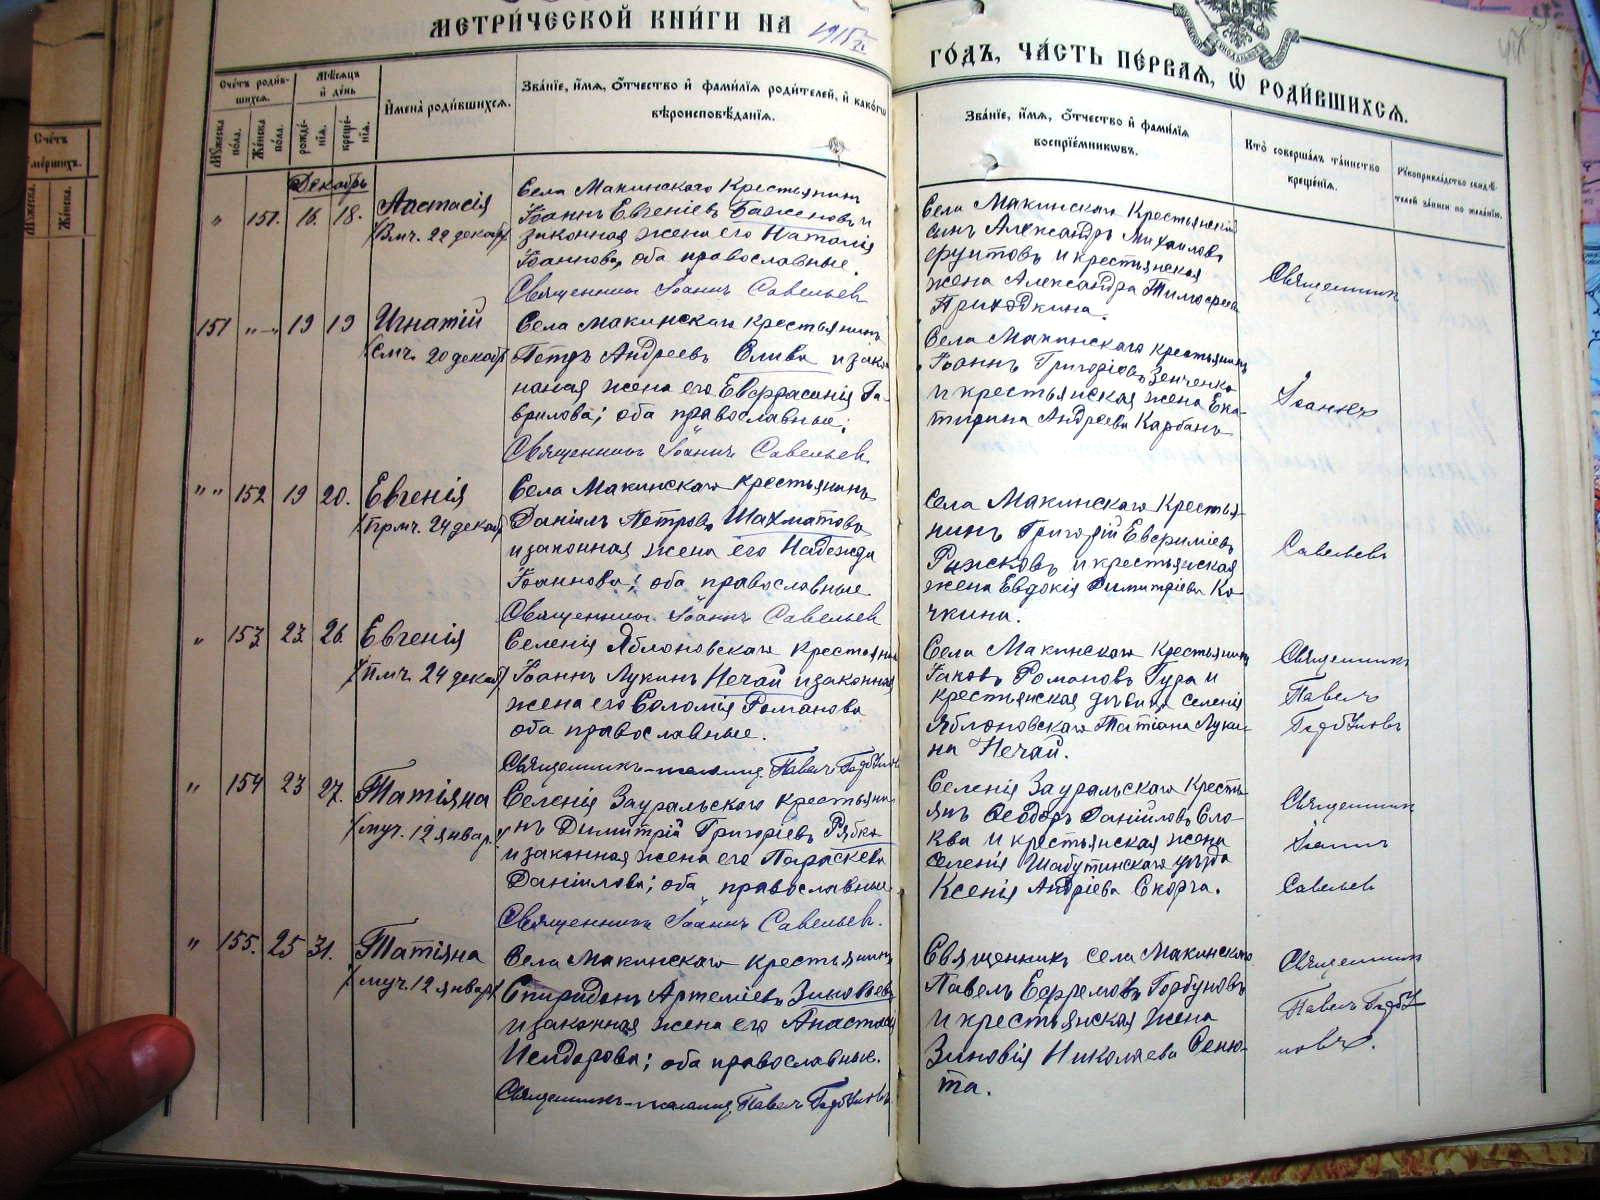 МЕТРИ́ЧЕСКОЙ КНИ́ГИ НА 1915 г.
ГО́ДЪ, ЧА́СТЬ ПЕ́РВАѦ, Ѡ҆ РОДИ́ВШИХСѦ.
Сче́тъ роди́в-
шихсѧ.
Мѣ́сѧцъ
и҆ де́нь
И҆мена̀ роди́вшихсѧ.
Зва́нїе, и҆́мѧ, ѻ҆́тчество и҆ фами́лїѧ роди́телей, и҆ како́гѡ
вѣроисповѣ́данїѧ.
Зва́нїе, и҆́мѧ, ѻ҆́тчество и҆ фами́лїѧ
воспрїе́мникѡвъ.
Кто̀ соверша́лъ та́инство
креще́нїѧ.
Рꙋкоприкла́дство свидѣ́-
телей за́писи по жела́нїю.
Мꙋ́жеска
по́ла.
Же́нска
по́ла.
рожде́-
нїѧ.
креще́-
нїѧ.
Счетъ
умершихъ.
Декабрь
" 151. 16. 18. Анастасія
(Вмч. 22 декаб)
Села Макинскаго крестьянинъ
Іоаннъ Евгеніевъ Баженовъ и
законная жена его Наталія
Іоаннова, оба православные.
Священникъ Іоаннъ Савельевъ
Села Макинскаго крестьянскій
сынъ Александръ Михаиловъ
Фунтовъ и крестьянская
жена Александра Тимофеева
Приходкина.
Священникъ
151 "—" 19 19 Игнатій
(смч. 20 декаб)
Села Макинскаго крестьянинъ
Петръ Андреевъ Слива и зако-
нная жена его Евфрасинія Га-
врилова; оба православные.
Священникъ Іоаннъ Савельевъ
Села Макинскаго крестьянинъ
Іоаннъ Григоріевъ Зенченко
и крестьянская жена Ека-
терина Андреева Карбанъ
Іоаннъ
" " 152 19 20. Евгенія
(прмч. 24 декаб)
Села Макинскаго крестьянинъ
Даніилъ Петровъ Шахматовъ
и законная жена его Надежда
Іоаннова; оба православные
Священникъ Іоаннъ Савельевъ
Села Макинскаго Крестья-
нинъ Григорій Евфиміевъ
Рыжковъ и крестьянская
жена Евдокія Димитріева Ко-
чкина.
Савельевъ
" 153 23. 26. Евгенія
(пмч. 24 декаб)
Селенія Яблоновскаго крестьянинъ
Іоаннъ Лукинъ Нечай и законная
жена его Соломія Романова
оба православные.
Священникъ Павелъ Горбуновъ
Села Макинскаго крестьянинъ
Іаковъ Романовъ Гуза и
крестьянская дѣвица селенія
Яблоновскаго Татіана Луки-
на Нечай.
Священникъ
Павелъ
Горбуновъ
" 154 23 27. Татіяна
(муч. 12 январ.)
Селенія Зауральскаго крестьяни-
нъ Димитрій Григоріевъ Рябко
и законная жена его Параскева
Даніилова; оба православные
Священникъ Іоаннъ Савельевъ.
Селенія Зауральскаго Кресть-
янъ Ѳеодоръ Даніиловъ Сло-
ква и крестьянская жена
селенія
Ксенія Андріева Скорга.
Священникъ
Іоаннъ
Савельевъ
" 155. 25 31. Татіяна
(муч. 12 январ)
Села Макинскаго крестьянинъ
Спиридонъ Артеміевъ Зиновьевъ
и законная жена его Анастасія
Исидорова; оба православные.
Священникъ Павелъ Горбуновъ
Священникъ села Макинскаго
Павелъ Ефремовъ Горбуновъ
и крестьянская жена
Зиновія Николаева Сеню-
та.
Священникъ
Павелъ Горбу-
новъ.